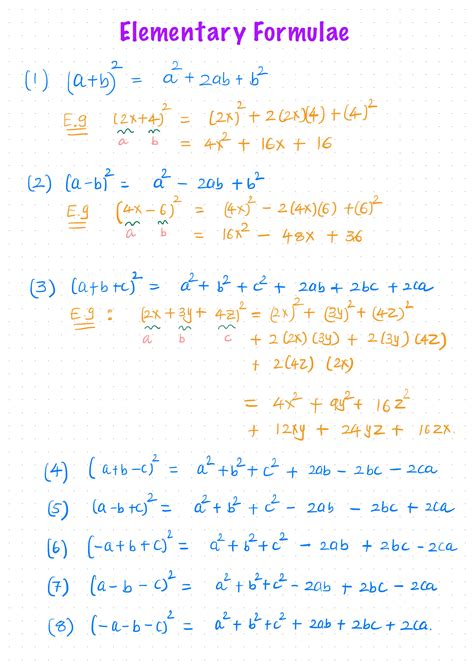 Elementary Formulae
(1) (a+b)² = a² + 2ab + b²
E.g (2x+4)² = (2x)² + 2(2x)(4) + (4)²
a b = 4x² + 16x + 16
(2) (a-b)² = a² - 2ab + b²
E.g (4x-6)² = (4x)² - 2(4x)(6) + (6)²
a b = 16x² - 48x + 36
(3) (a+b+c)² = a² + b² + c² + 2ab + 2bc + 2ca
E.g : (2x + 3y + 4z)² = (2x)² + (3y)² + (4z)²
a b c + 2(2x)(3y) + 2(3y)(4z)
+ 2(4z)(2x)
= 4x² + 9y² + 16z²
+ 12xy + 24yz + 16zx.
(4) (a+b-c)² = a² + b² + c² + 2ab - 2bc - 2ca
(5) (a-b+c)² = a² + b² + c² - 2ab - 2bc + 2ca
(6) (-a+b+c)² = a² + b² + c² - 2ab + 2bc - 2ca
(7) (a-b-c)² = a² + b² + c² - 2ab + 2bc - 2ca.
(8) (-a-b-c)² = a² + b² + c² + 2ab + 2bc + 2ca.